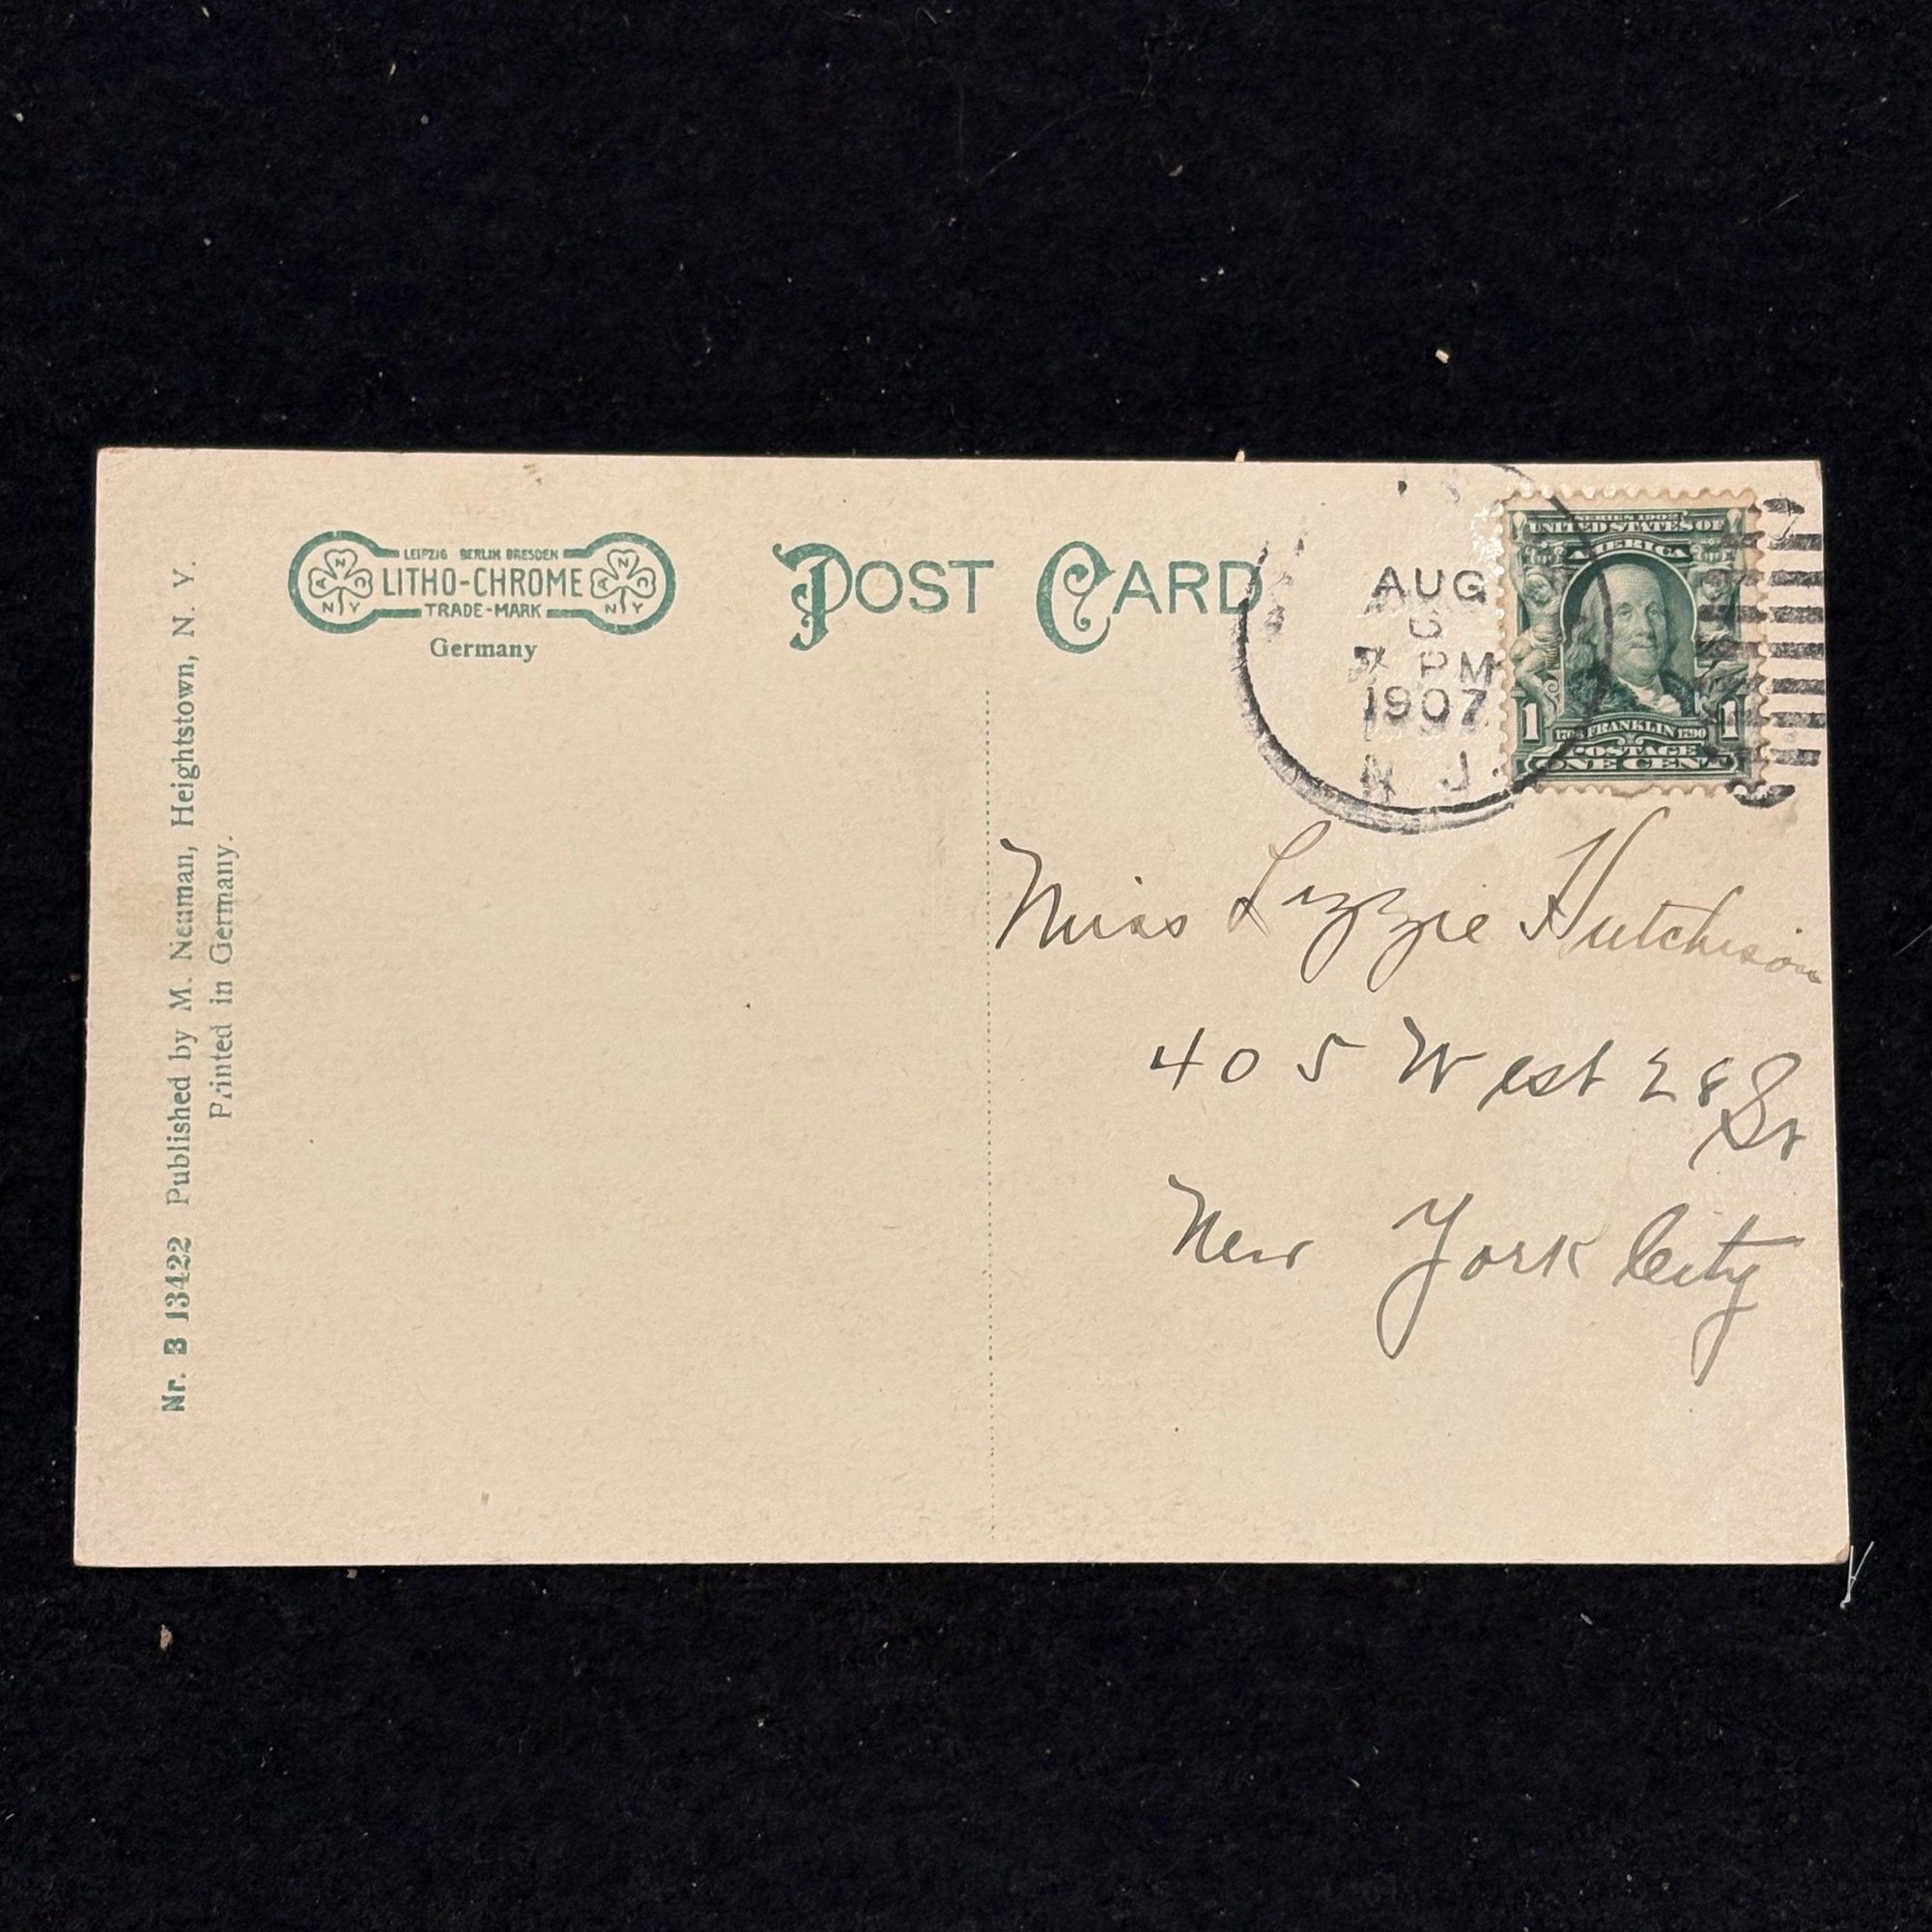 Nr. B 13422 Published by M. Neuman, Heightstown, N. Y.
Printed in Germany.
LEIPZIG BERLIN DRESDEN
LITHO-CHROME
TRADE-MARK
Germany
POST CARD
AUG
PM
1907
N J.
SERIES 1902
UNITED STATES OF
AMERICA
1 1
1706 FRANKLIN 1790
POSTAGE
ONE CENT
Miss Lizzie Hutchison
405 West 28 St
New York City